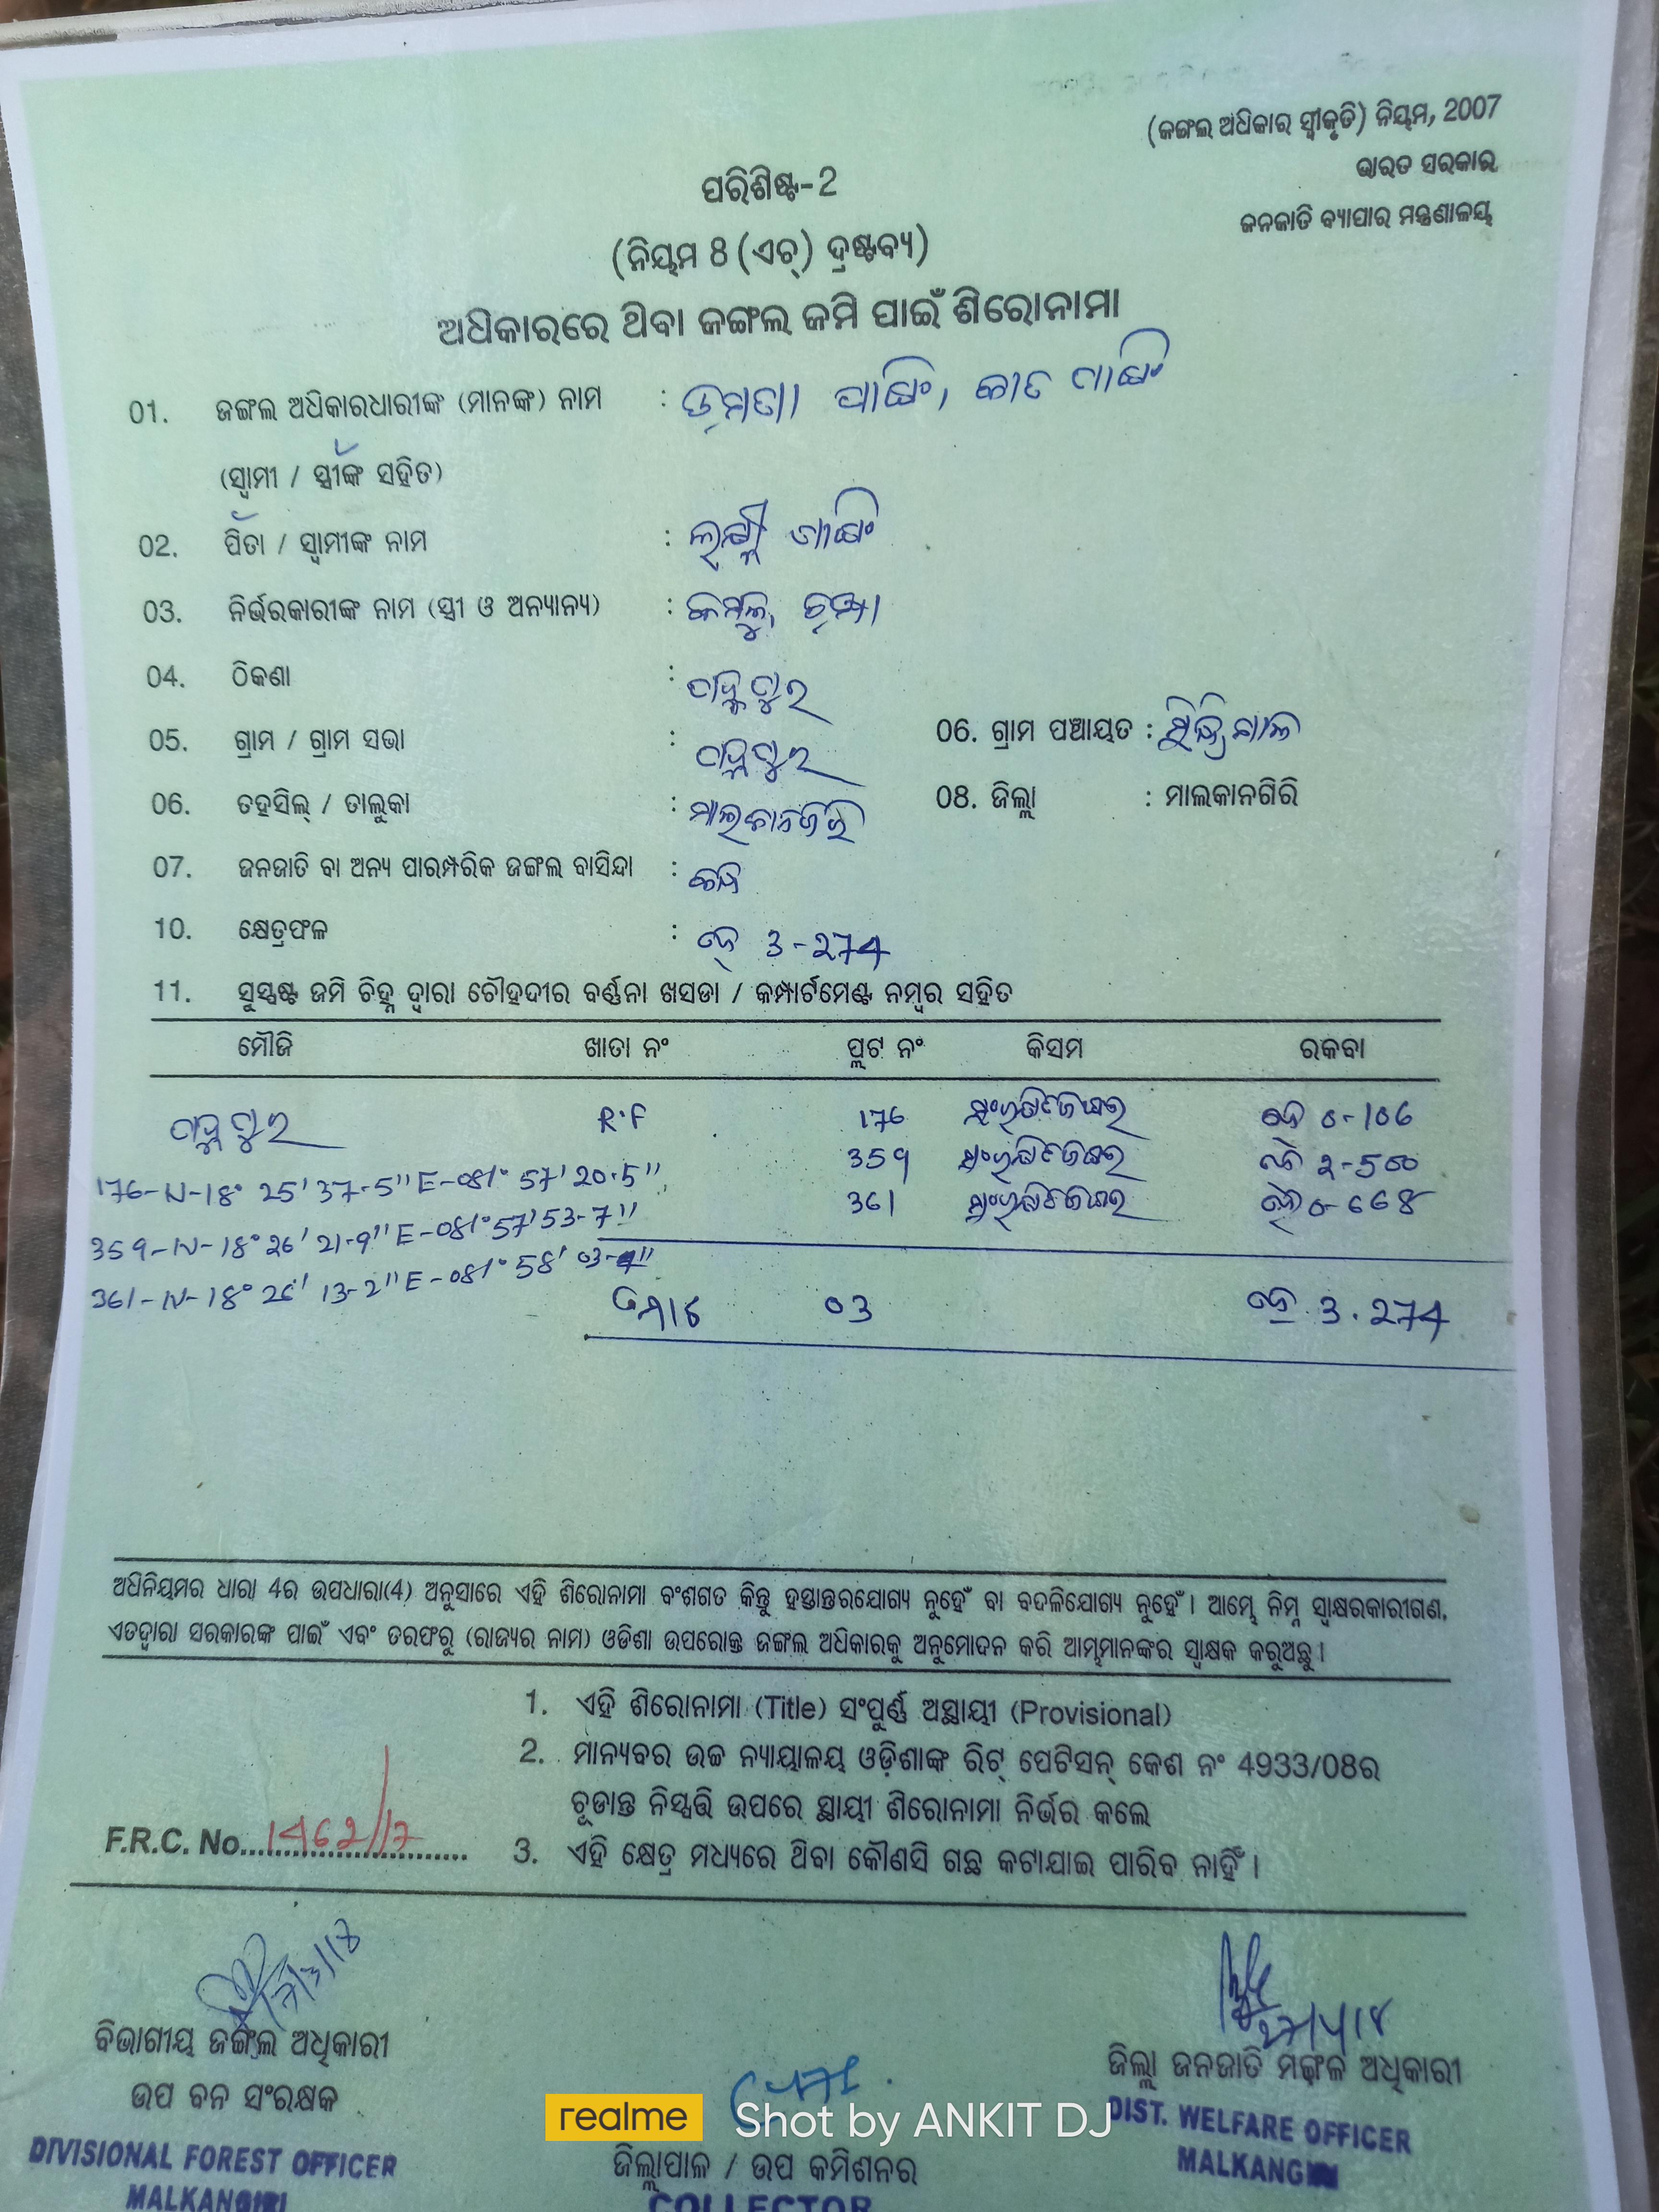 (ଜଙ୍ଗଲ ଅଧିକାର ସ୍ୱୀକୃତି) ନିୟମ, 2007
ଭାରତ ସରକାର
ଜନଜାତି ବ୍ୟାପାର ମନ୍ତ୍ରଣାଳୟ
ପରିଶିଷ୍ଟ-2
(ନିୟମ 8 (ଏଚ୍) ଦ୍ରଷ୍ଟବ୍ୟ)
ଅଧିକାରରେ ଥିବା ଜଙ୍ଗଲ ଜମି ପାଇଁ ଶିରୋନାମା
01. ଜଙ୍ଗଲ ଅଧିକାରଧାରୀଙ୍କ (ମାନଙ୍କ) ନାମ :
(ସ୍ୱାମୀ / ସ୍ତ୍ରୀଙ୍କ ସହିତ)
02. ପିତା / ସ୍ୱାମୀଙ୍କ ନାମ :
03. ନିର୍ଭରକାରୀଙ୍କ ନାମ (ସ୍ତ୍ରୀ ଓ ଅନ୍ୟାନ୍ୟ) :
04. ଠିକଣା :
05. ଗ୍ରାମ / ଗ୍ରାମ ସଭା : 06. ଗ୍ରାମ ପଞ୍ଚାୟତ :
06. ତହସିଲ୍ / ତାଲୁକା : ମାଲକାନଗିରି 08. ଜିଲ୍ଲା : ମାଲକାନଗିରି
07. ଜନଜାତି ବା ଅନ୍ୟ ପାରମ୍ପରିକ ଜଙ୍ଗଲ ବାସିନ୍ଦା :
10. କ୍ଷେତ୍ରଫଳ : ହେ 3-274
11. ସୁସ୍ପଷ୍ଟ ଜମି ଚିହ୍ନ ଦ୍ୱାରା ଚୌହଦୀର ବର୍ଣ୍ଣନା ଖସଡା / କମ୍ପାର୍ଟମେଣ୍ଟ ନମ୍ବର ସହିତ
ମୌଜି ଖାତା ନଂ ପ୍ଲଟ ନଂ କିସମ ରକବା
R.F 176 ହେ 0-106
176-N-18° 25' 37.5" E-081° 57' 20.5" 359 ହେ 2-500
359-N-18° 26' 21-9" E-081° 57' 53-7" 361 ହେ 0-668
361-N-18° 26' 13-2" E-081° 58' 03-4"
ମୋଟ 03 ହେ 3.274
ଅଧିନିୟମର ଧାରା 4ର ଉପଧାରା(4) ଅନୁସାରେ ଏହି ଶିରୋନାମା ବଂଶଗତ କିନ୍ତୁ ହସ୍ତାନ୍ତରଯୋଗ୍ୟ ନୁହେଁ ବା ବଦଳିଯୋଗ୍ୟ ନୁହେଁ। ଆମ୍ଭେ ନିମ୍ନ ସ୍ୱାକ୍ଷରକାରୀଗଣ,
ଏତଦ୍ୱାରା ସରକାରଙ୍କ ପାଇଁ ଏବଂ ତରଫରୁ (ରାଜ୍ୟର ନାମ) ଓଡିଶା ଉପରୋକ୍ତ ଜଙ୍ଗଲ ଅଧିକାରକୁ ଅନୁମୋଦନ କରି ଆମ୍ଭମାନଙ୍କର ସ୍ୱାକ୍ଷକ କରୁଅଛୁ।
1. ଏହି ଶିରୋନାମା (Title) ସଂପୂର୍ଣ୍ଣ ଅସ୍ଥାୟୀ (Provisional)
2. ମାନ୍ୟବର ଉଚ୍ଚ ନ୍ୟାୟାଳୟ ଓଡ଼ିଶାଙ୍କ ରିଟ୍ ପେଟିସନ୍ କେଶ ନଂ 4933/08ର
ଚୂଡାନ୍ତ ନିସ୍ପତ୍ତି ଉପରେ ସ୍ଥାୟୀ ଶିରୋନାମା ନିର୍ଭର କଲେ
F.R.C. No. 1462/17
3. ଏହି କ୍ଷେତ୍ର ମଧ୍ୟରେ ଥିବା କୌଣସି ଗଛ କଟାଯାଇ ପାରିବ ନାହିଁ।
ବିଭାଗୀୟ ଜଙ୍ଗଲ ଅଧିକାରୀ
ଉପ ବନ ସଂରକ୍ଷକ
DIVISIONAL FOREST OFFICER
MALKANGIRI
ଜିଲ୍ଲାପାଳ / ଉପ କମିଶନର
COLLECTOR
ଜିଲ୍ଲା ଜନଜାତି ମଙ୍ଗଳ ଅଧିକାରୀ
DIST. WELFARE OFFICER
MALKANGIRI
realme Shot by ANKIT DJ